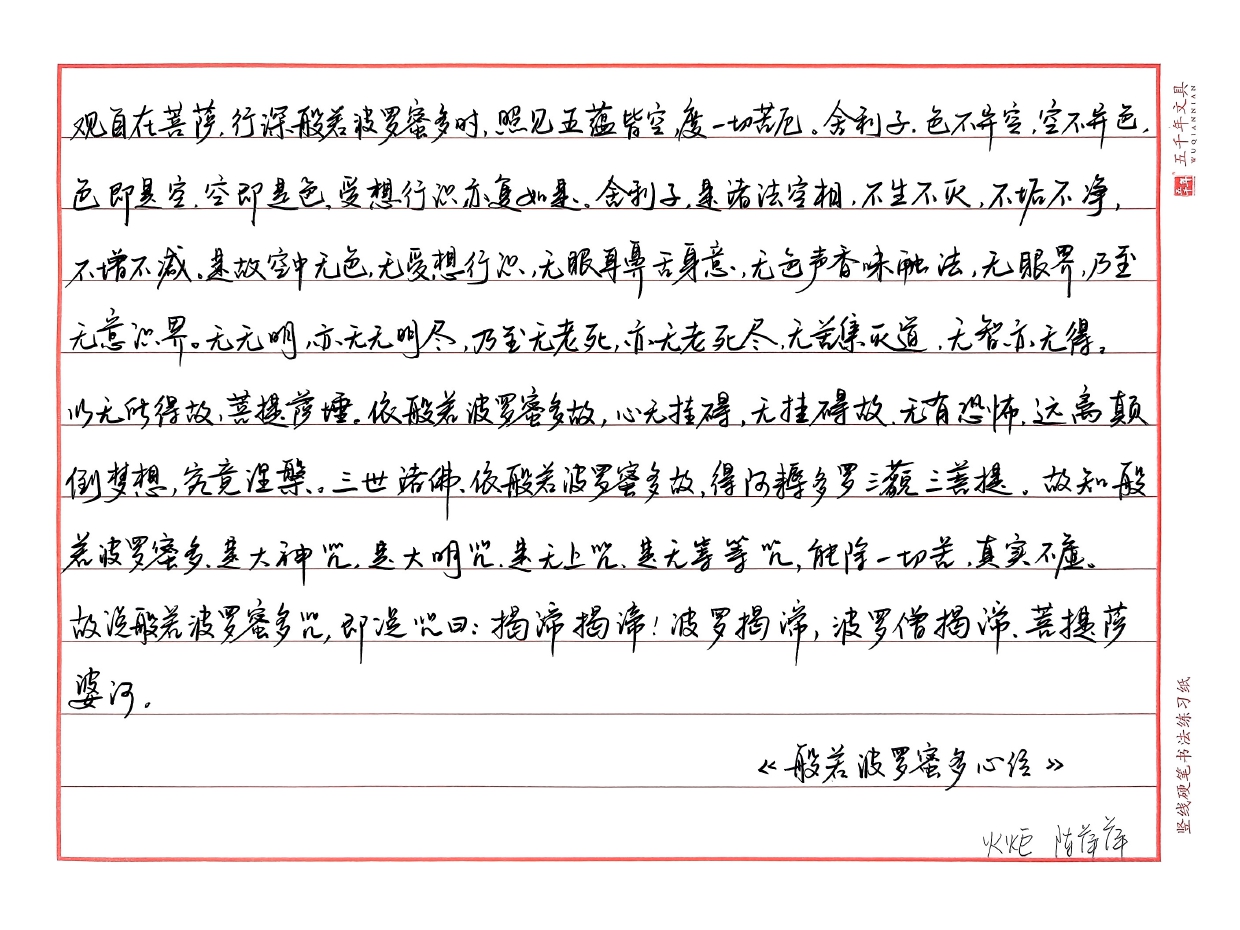 观自在菩萨,行深般若波罗蜜多时,照见五蕴皆空,度一切苦厄。舍利子,色不异空,空不异色,
色即是空,空即是色,受想行识亦复如是。舍利子,是诸法空相,不生不灭,不垢不净,
不增不减。是故空中无色,无受想行识,无眼耳鼻舌身意,无色声香味触法,无眼界,乃至
无意识界。无无明,亦无无明尽,乃至无老死,亦无老死尽,无苦集灭道,无智亦无得。
以无所得故,菩提萨埵。依般若波罗蜜多故,心无挂碍,无挂碍故,无有恐怖,远离颠
倒梦想,究竟涅槃。三世诸佛、依般若波罗蜜多故,得阿耨多罗三藐三菩提。故知般
若波罗蜜多、是大神咒,是大明咒、是无上咒、是无等等咒,能除一切苦,真实不虚。
故说般若波罗蜜多咒,即说咒曰:揭谛揭谛!波罗揭谛,波罗僧揭谛、菩提萨
婆诃。
《般若波罗蜜多心经》
火炬 陈萍萍
五千年文具
WUQIANNIAN
竖线硬笔书法练习纸